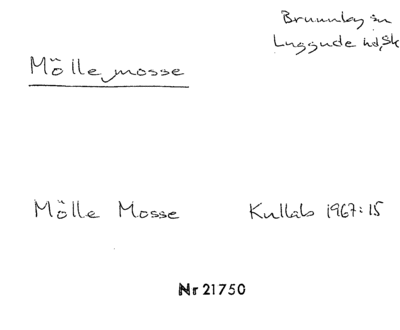 Brunnby sn
Luggude hd, Sk
Mölle mosse
Mölle Mosse Kullab 1967:15
Nr 21750